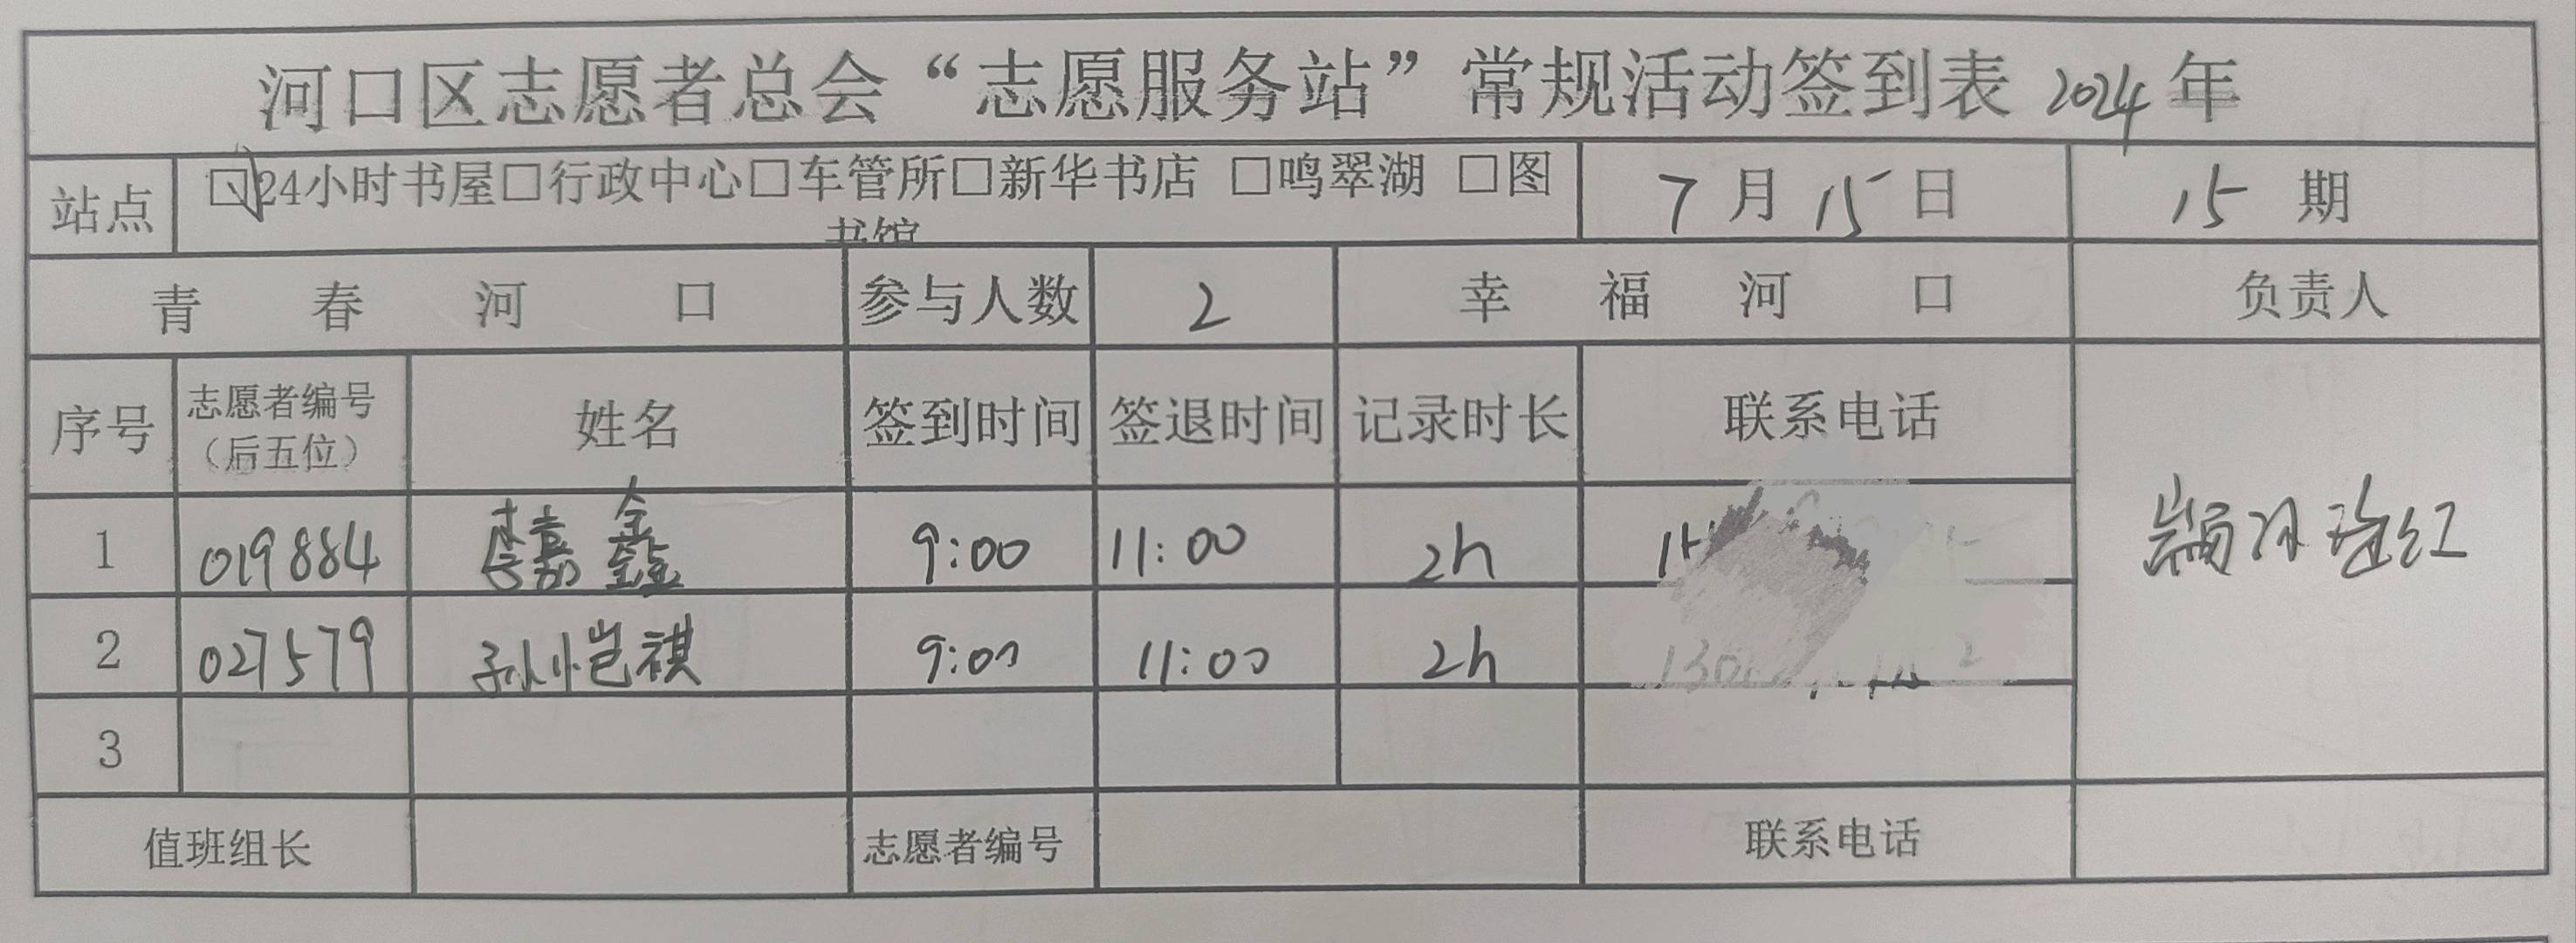 河口区志愿者总会“志愿服务站”常规活动签到表 2024 年
站点 ☑24小时书屋□行政中心□车管所□新华书店 □鸣翠湖 □图 7 月 15 日 15 期
书馆
青 春 河 口 参与人数 2 幸 福 河 口 负责人
序号 志愿者编号 姓名 签到时间 签退时间 记录时长 联系电话
（后五位）
1 019884 李嘉鑫 9:00 11:00 2h
2 027579 孙恺祺 9:00 11:00 2h
3
值班组长 志愿者编号 联系电话